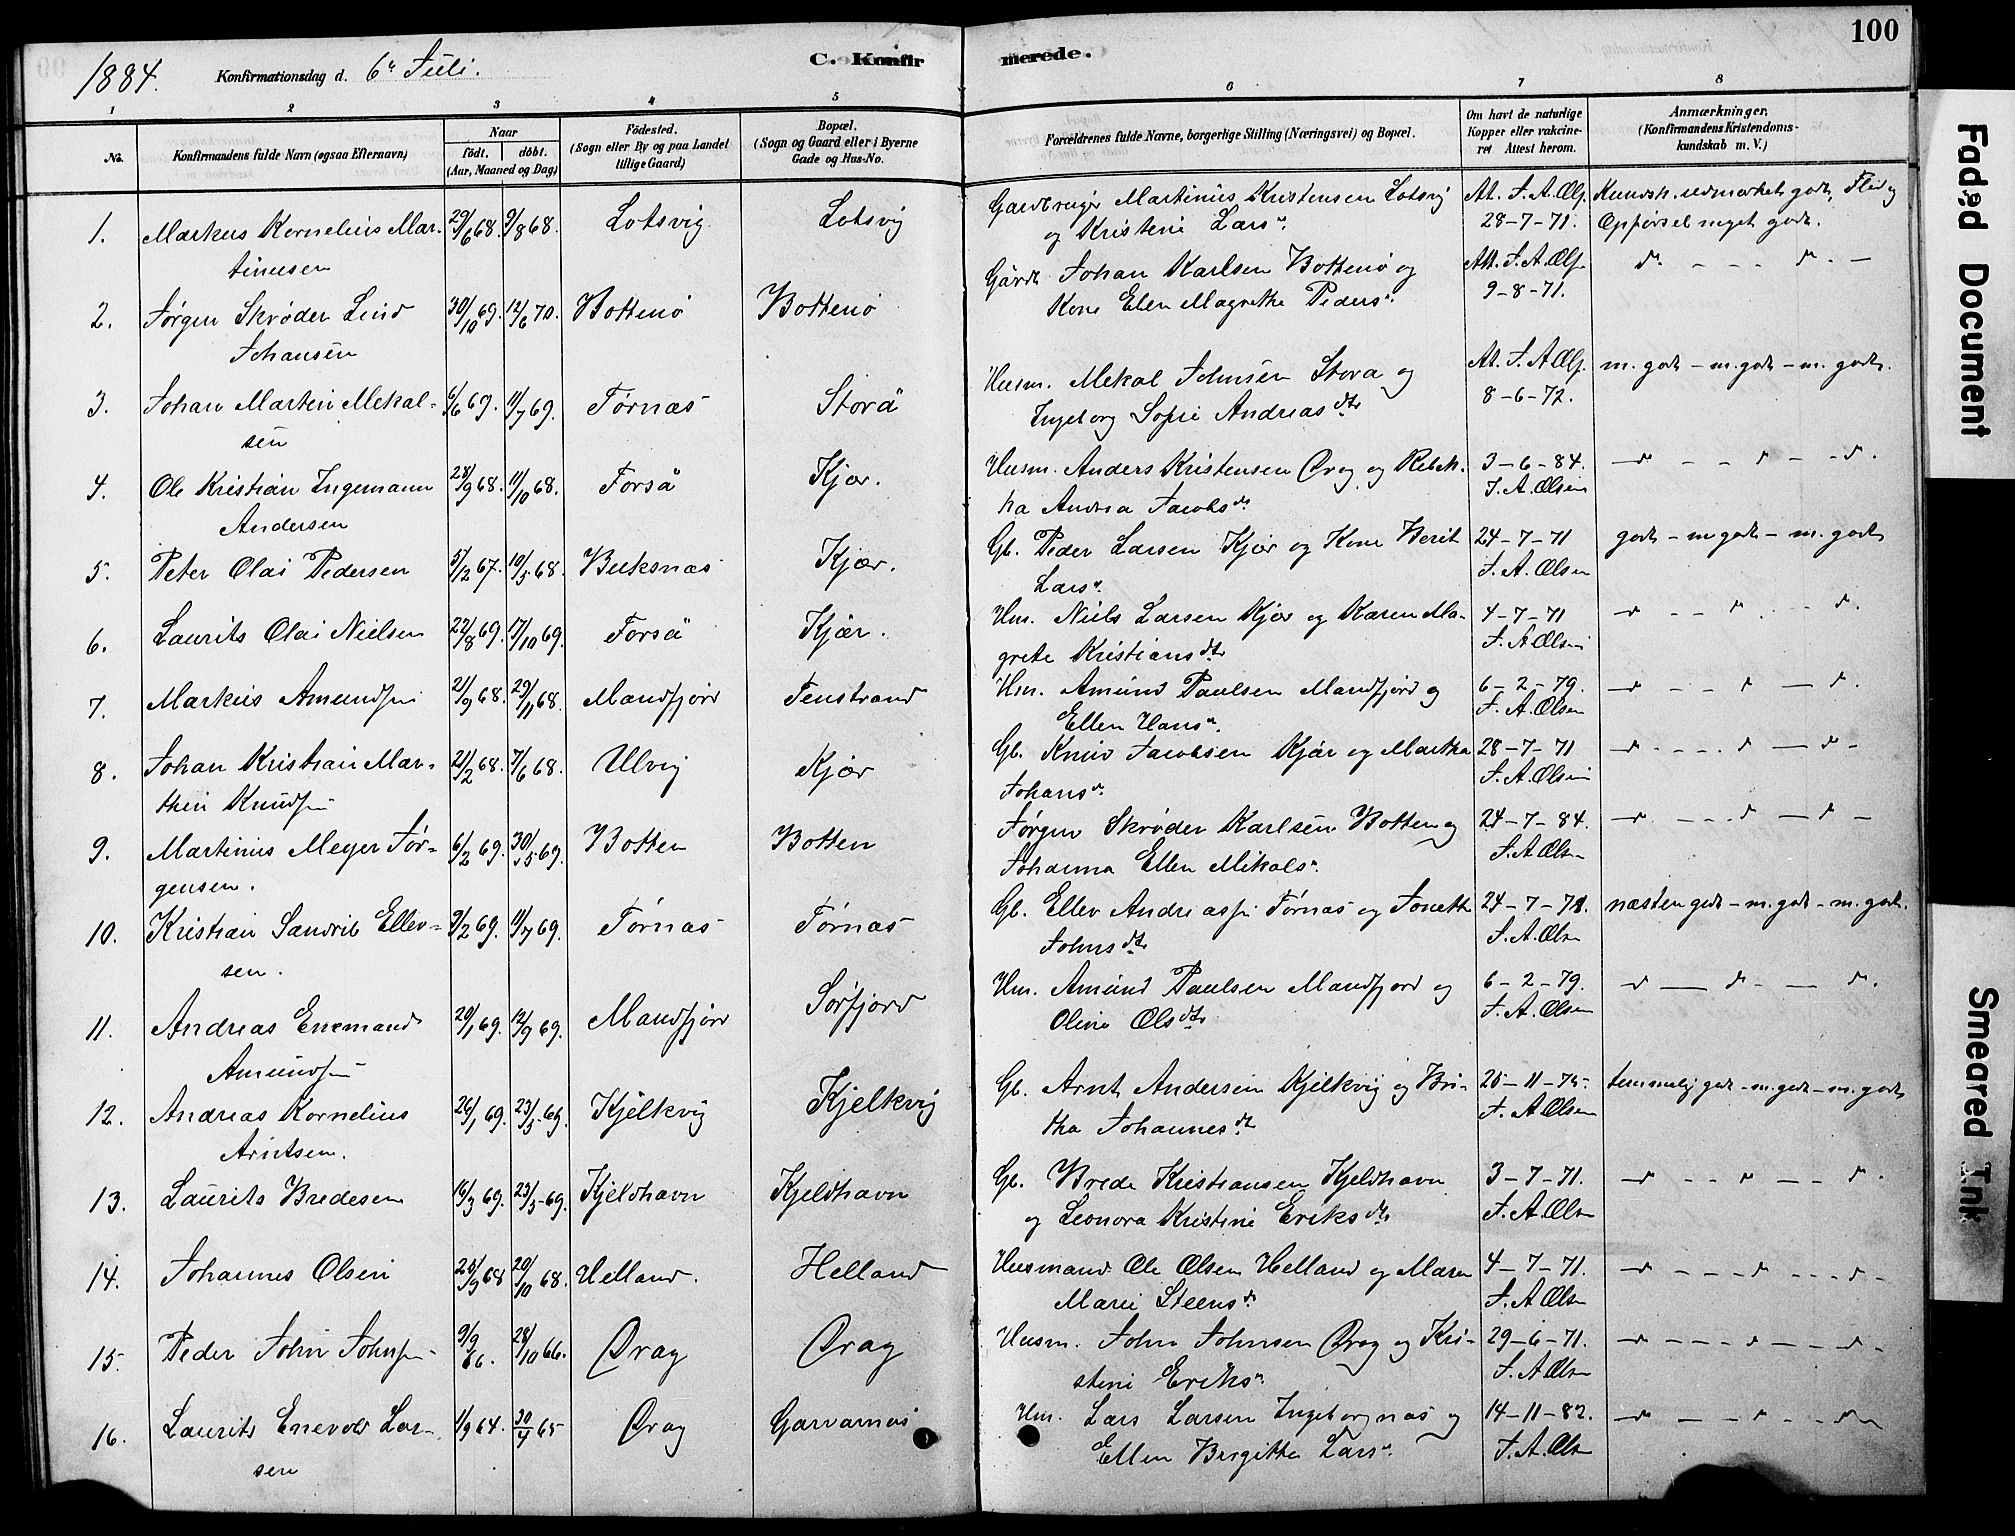 100
1884. Konfirmationsdag d. 6te Juli. C. Konfirmerede.
1 2 3 4 5 6 7 8
No. Konfirmandens fulde Navn (ogsaa Efternavn)
Naar
født. døbt.
(Aar, Maaned og Dag)
Fødested.
(Sogn eller By og paa Landet
tillige Gaard)
Bopæl.
(Sogn og Gaard eller i Byerne
Gade og Hus-No.
Forældrenes fulde Navne, borgerlige Stilling (Næringsvei) og Bopæl.
Om havt de naturlige
Kopper eller vakcine-
ret Attest herom.
Anmærkninger.
(Konfirmandens Kristendoms-
kundskab m. V.)
1. Markus Kornelius Mar- 29/6 68. 9/8 68. Lotsvig Lotsvig
tinusen
Gaardbruger Martinus Kristensen Lotsvig
og Kristine Lars d.
At. J. A. Ols.
28-7-71.
Kundsk. udmærket godt, Flid og
Opførsel meget godt.
2. Jørgen Skrøder Lind 30/10 69. 12/6 70. Bottenø Bottenø
Johansen
Gårdb. Johan Karlsen Bottenø og
Kone Elen Magrethe Peders d.
Att. J. A. Ols.
9-8-71.
d. - - - d. -
3. Johan Martin Mekal- 6/6 69. 11/7 69. Tørnæs Storå
sen
Husm. Mekal Johnsen Stora og
Ingeborg Sofie Andreas dtr
At. J. A. Ols.
8-6-72.
m. godt - m. godt - m. godt.
4. Ole Kristian Ingemann 28/9 68. 11/10 68. Forså Kjær.
Andersen
Husm. Anders Kristensen Drag og Rebek-
ka Andrea Jacobs dr
3-6-84.
J. A. Olsen
d - - d - - d.
5. Peter Olai Pedersen 5/12 67. 10/5 68. Buksnæs Kjær.
Gb. Peder Larsen Kjær og Kone Berit
Lars d.
24-7-71
J. A. Olsen
godt - m godt - m. godt
6. Laurits Olai Nielsen 22/8 69. 17/10 69. Forså Kjær.
Hm. Niels Larsen Kjær og Karen Ma-
grete Kristians dtr
4-7-71
J. A Olsen
d - - d - - d.
7. Markus Amundsen 21/9 68. 29/11 68. Mandfjord Fenstrand
Hm. Amund Paulsen Mandfjord og
Ellen Hans d.
6-2-79.
J. A. Olsen
d - - d - d.
8. Johan Kristian Mar- 21/2 68. 7/6 68. Ulvig Kjær
thin Knudsen
Gb. Knud Jacobsen Kjær og Martha
Johans d.
28-7-71
J. A. Olsen
d - - - d - d -
9. Martinus Meyer Jør- 6/2 69. 30/5 69. Botten Botten
gensen.
Jørgen Skrøder Karlsen Botten og
Johanna Ellen Mikals d.
24-7-84.
J. A Olsen
d - - - d - d -
10. Kristian Sandrib Ellev- 9/2 69. 11/7 69. Tørnæs Tørnæs
sen.
Gb. Ellev Andreassen Tørnæs og Jonette
Johns dtr
24-7-71.
J. A. Olsen
næsten godt - m. godt - m. godt.
11. Andreas Enemand 20/1 69. 12/9 69. Mandfjord Sørfjord
Amundsen
Hm. Amund Paulsen Mandfjord og
Oline Ols dtr
6-2-79.
J. A. Olsen
d - d - - d.
12. Andreas Kornelius 26/1 69. 23/5 69. Kjelkvig Kjelkvig
Arntsen.
Gb. Arnt Andersen Kjelkvig og Bri-
tha Johannes dtr
25-11-75.
J. A Olsen
temmelig godt - m. godt - m. godt
13. Laurits Bredesen 16/3 69. 23/5 69. Kjeldhavn Kjeldhavn
Gb. Brede Kristiansen Kjeldhavn
og Leonora Kristine Eriks dtr
3-7-71.
J. A. Olsen
d - - d - - d.
14. Johannes Olsen 25/9 68 20/10 68. Helland. Helland
Husmand Ole Olsen Helland og Maren
Marie Steens d.
4-7-71.
J. A Olsen
d - - - d - - - d -
15. Peder John Johnsen 9/9 66. 28/10 66. Drag Drag
Husm. John Johnsen Drag og Kri-
stine Eriks d.
29-6-71.
J. A Olsen
d - - - d - - d -
16. Laurits Enevold Lar- 1/9 64. 30/4 65 Drag Garvarnæs
sen
Hm. Lars Larsen Ingeborgnæs og
Ellen Birgitte Lars d.
14-11-82.
J. A. Olsen
d - - d - d -
Faded Document
Smeared Ink